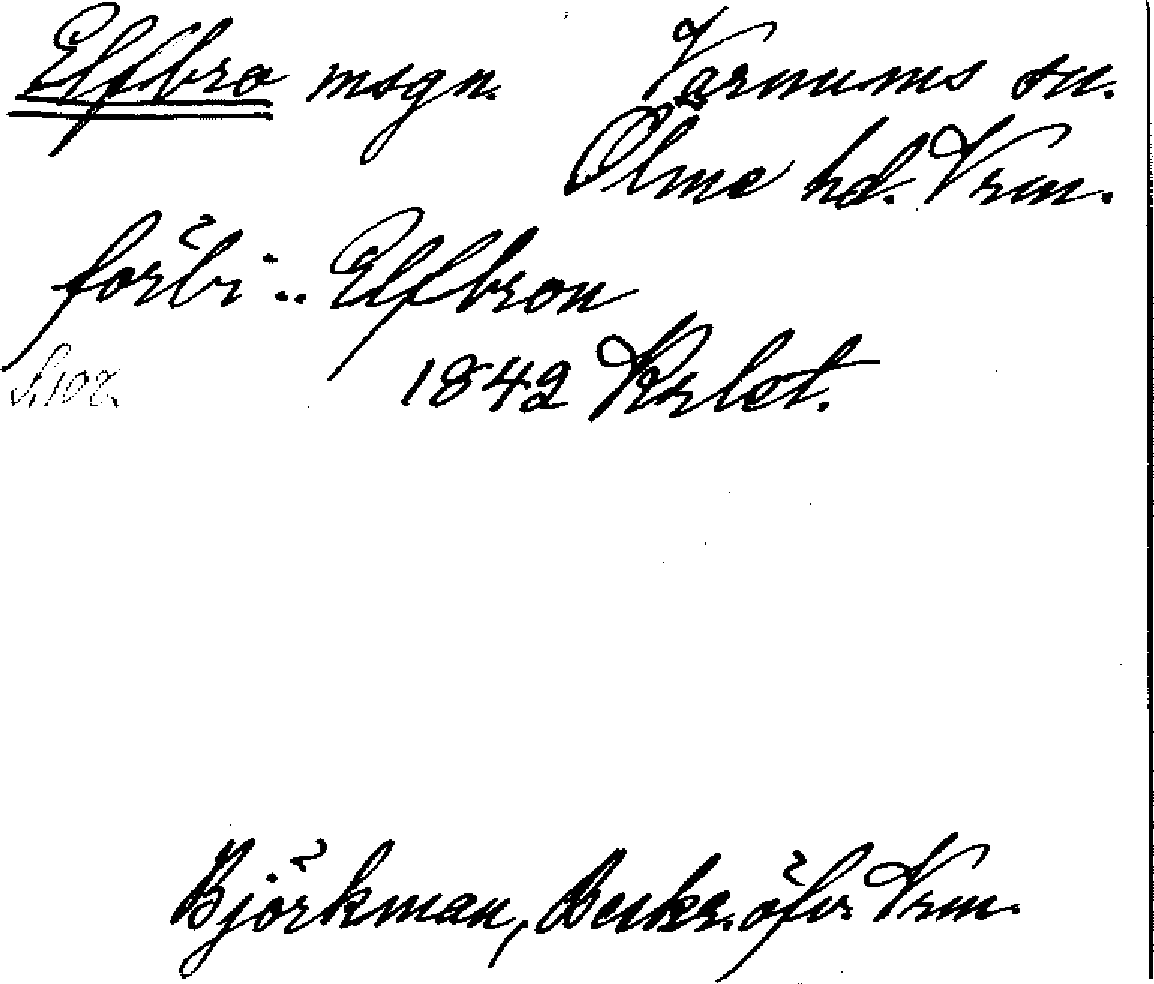 Elfbro msgn. Varnums sn.
Ölme hd. Vrm.
förbi .. Elfbron
S. 102. 1842 Krlst.
Björkman, Beskr. öfv. Vrm.